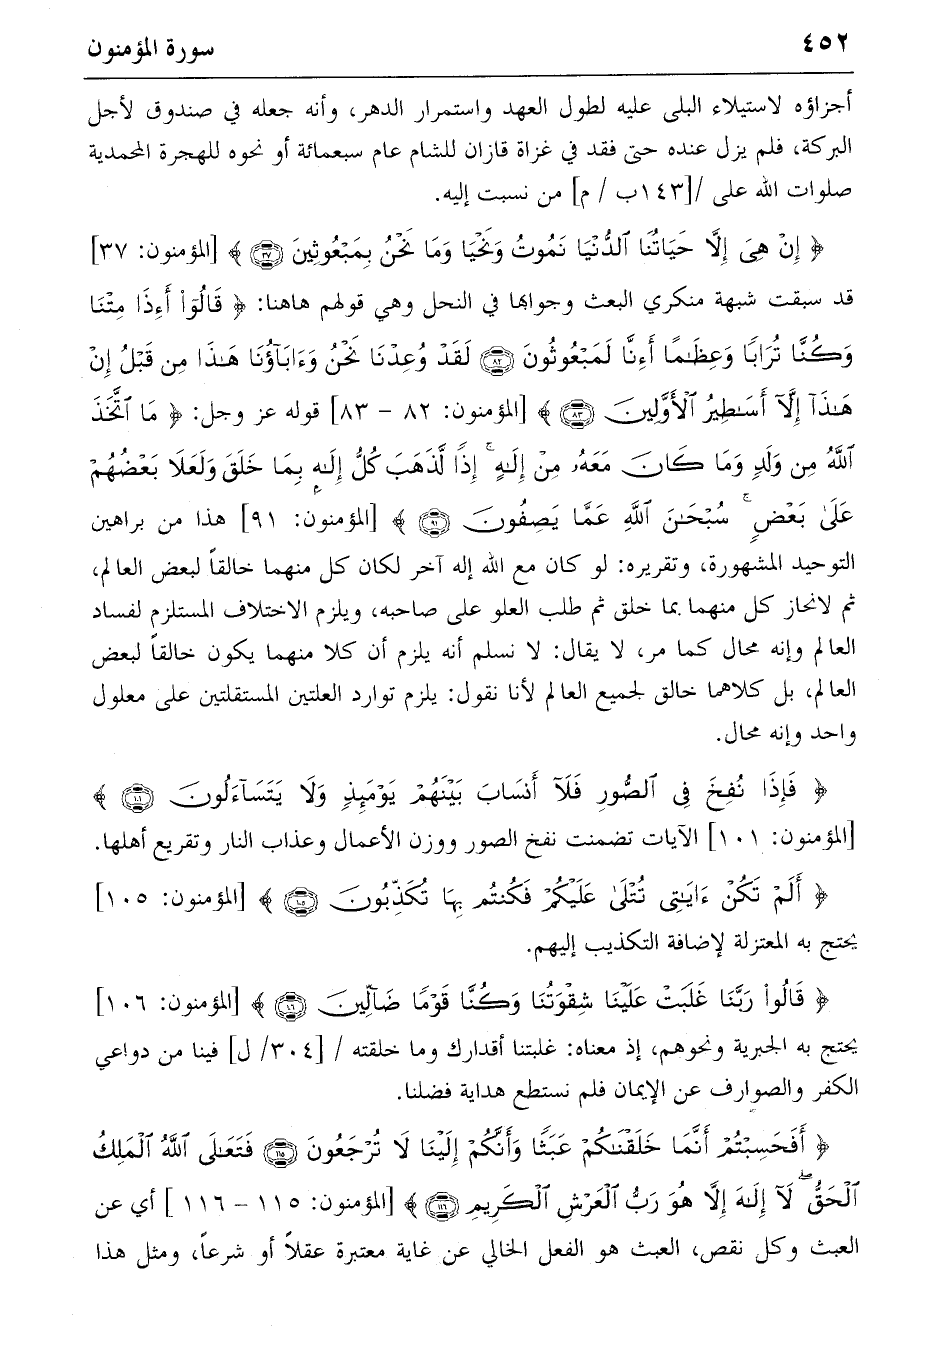 ٤٥٢ سورة المؤمنون
أجزاؤه لاستيلاء البلى عليه لطول العهد واستمرار الدهر، وأنه جعله في صندوق لأجل
البركة، فلم يزل عنده حتى فقد في غزاة قازان للشام عام سبعمائة أو نحوه للهجرة المحمدية
صلوات الله على /[١٤٣ب / م] من نسبت إليه.
﴿ إِنْ هِىَ إِلَّا حَيَاتُنَا ٱلدُّنْيَا نَمُوتُ وَنَحْيَا وَمَا نَحْنُ بِمَبْعُوثِينَ ۝٣٧ ﴾ [المؤمنون: ٣٧]
قد سبقت شبهة منكري البعث وجوابها في النحل وهي قولهم هاهنا: ﴿ قَالُوٓا۟ أَءِذَا مِتْنَا
وَكُنَّا تُرَابًا وَعِظَـٰمًا أَءِنَّا لَمَبْعُوثُونَ ۝٨٢ لَقَدْ وُعِدْنَا نَحْنُ وَءَابَآؤُنَا هَـٰذَا مِن قَبْلُ إِنْ
هَـٰذَآ إِلَّآ أَسَـٰطِيرُ ٱلْأَوَّلِينَ ۝٨٣ ﴾ [المؤمنون: ٨٢ - ٨٣] قوله عز وجل: ﴿ مَا ٱتَّخَذَ
ٱللَّهُ مِن وَلَدٍ وَمَا كَانَ مَعَهُۥ مِنْ إِلَـٰهٍ ۚ إِذًا لَّذَهَبَ كُلُّ إِلَـٰهٍۭ بِمَا خَلَقَ وَلَعَلَا بَعْضُهُمْ
عَلَىٰ بَعْضٍ ۚ سُبْحَـٰنَ ٱللَّهِ عَمَّا يَصِفُونَ ۝٩١ ﴾ [المؤمنون: ٩١] هذا من براهين
التوحيد المشهورة، وتقريره: لو كان مع الله إله آخر لكان كل منهما خالقاً لبعض العالم،
ثم لانحاز كل منهما بما خلق ثم طلب العلو على صاحبه، ويلزم الاختلاف المستلزم لفساد
العالم وإنه محال كما مر، لا يقال: لا نسلم أنه يلزم أن كلا منهما يكون خالقاً لبعض
العالم، بل كلاهما خالق لجميع العالم لأنا نقول: يلزم توارد العلتين المستقلتين على معلول
واحد وإنه محال.
﴿ فَإِذَا نُفِخَ فِى ٱلصُّورِ فَلَآ أَنسَابَ بَيْنَهُمْ يَوْمَئِذٍ وَلَا يَتَسَآءَلُونَ ۝١٠١ ﴾
[المؤمنون: ١٠١] الآيات تضمنت نفخ الصور ووزن الأعمال وعذاب النار وتقريع أهلها.
﴿ أَلَمْ تَكُنْ ءَايَـٰتِى تُتْلَىٰ عَلَيْكُمْ فَكُنتُم بِهَا تُكَذِّبُونَ ۝١٠٥ ﴾ [المؤمنون: ١٠٥]
يحتج به المعتزلة لإضافة التكذيب إليهم.
﴿ قَالُوا۟ رَبَّنَا غَلَبَتْ عَلَيْنَا شِقْوَتُنَا وَكُنَّا قَوْمًا ضَآلِّينَ ۝١٠٦ ﴾ [المؤمنون: ١٠٦]
يحتج به الجبرية ونحوهم، إذ معناه: غلبتنا أقدارك وما خلقته / [٣٠٤/ ل] فينا من دواعي
الكفر والصوارف عن الإيمان فلم نستطع هداية فضلنا.
﴿ أَفَحَسِبْتُمْ أَنَّمَا خَلَقْنَـٰكُمْ عَبَثًا وَأَنَّكُمْ إِلَيْنَا لَا تُرْجَعُونَ ۝١١٥ فَتَعَـٰلَى ٱللَّهُ ٱلْمَلِكُ
ٱلْحَقُّ ۖ لَآ إِلَـٰهَ إِلَّا هُوَ رَبُّ ٱلْعَرْشِ ٱلْكَرِيمِ ۝١١٦ ﴾ [المؤمنون: ١١٥ - ١١٦ ] أي عن
العبث وكل نقص، العبث هو الفعل الخالي عن غاية معتبرة عقلاً أو شرعاً، ومثل هذا